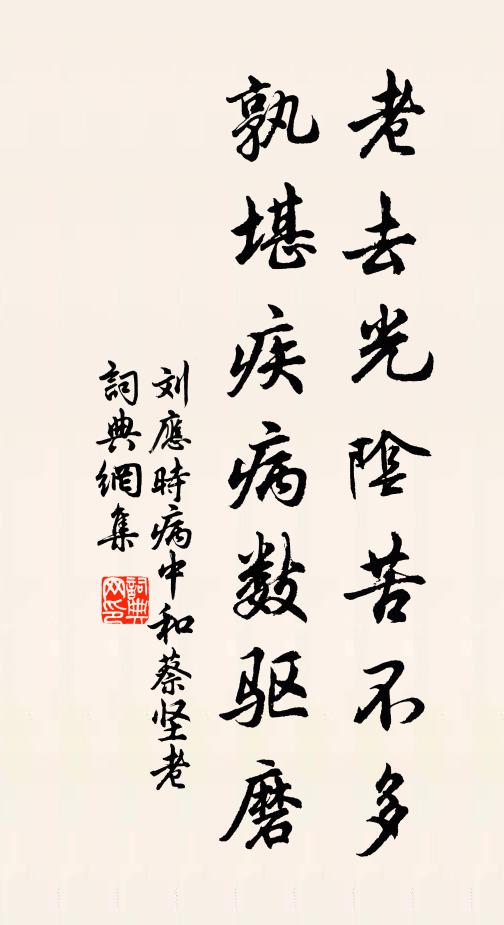 老去光陰苦不多
孰堪疾病数驱磨
刘應時病中和蔡坚老
詞典網集
詞典网印